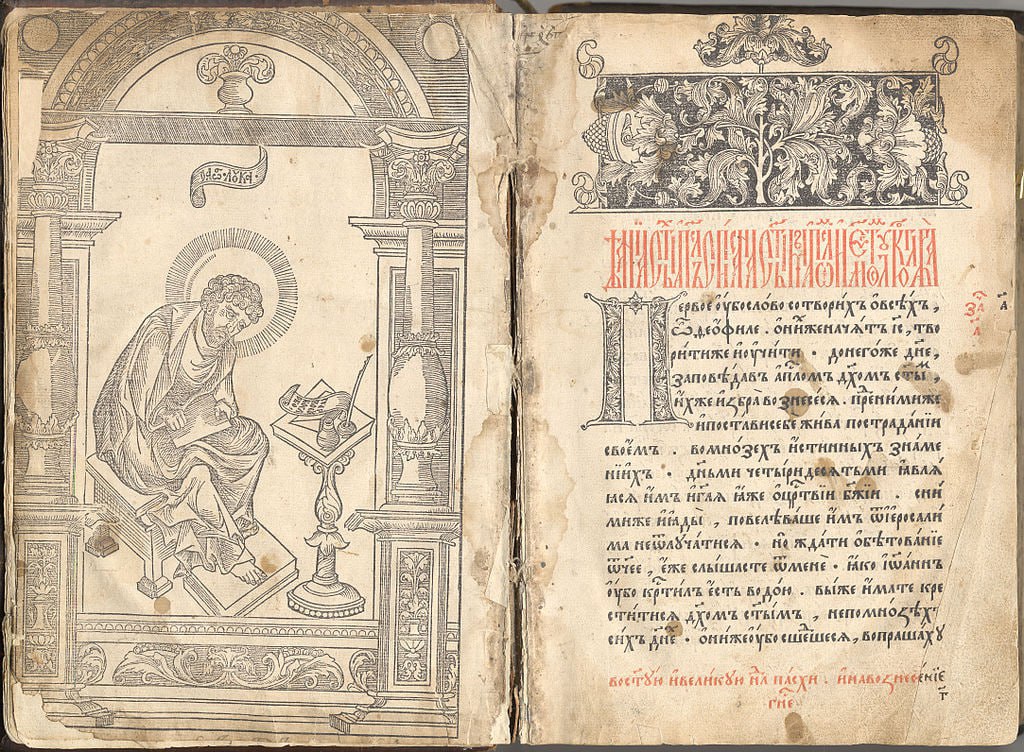 ѻа҃ѿ · лꙋка ·
Первое ѹ҆бо слово сотворихъ ѻ҆ всѣхъ ,
ѽ деѻ҆филе . ѻ҆ ниже начатъ і҆с҃ , тво
рити же и҆ ѹ҆чити · до него же дн҃е ,
заповѣдавъ а҆пⷭ҇ломъ дх҃омъ ст҃ыⷨ ,
и҆хже и҆збра вознесесѧ . пре ними же
и҆ постави себе жива по страданїи
своемъ . во мнозѣхъ и҆стинныхъ знаме
нїи҆хъ · дньми четыридесѧтьми ꙗ҆влѧ
ꙗсѧ и҆мъ и҆ г҃лѧ ꙗ҆же ѻ҆ црⷭ҇твїи бж҃їи . сни
миже и҆ ꙗ҆ды , повелѣваше и҆мъ ѿ і҆еросали
ма не ѿлучатисѧ · но ждати ѻ҆бѣтованїе
ѿч҃ее , є҆же слышасте ѿ мене · ꙗ҆ко і҆ѡ҆аннъ
ѹ҆бо крⷭ҇тилъ є҆сть водою . вы же и҆мате кре
ститисѧ дх҃омъ ст҃ымъ , не по мнозѣхъ
сихъ дн҃е · ѻ҆ни же ѹ҆бо сшеⷣшесѧ , вопрашахꙋ
во ст҃ꙋю и҆ великꙋю нⷣлю пасхи . и҆ на вознесенїе
гн҃е